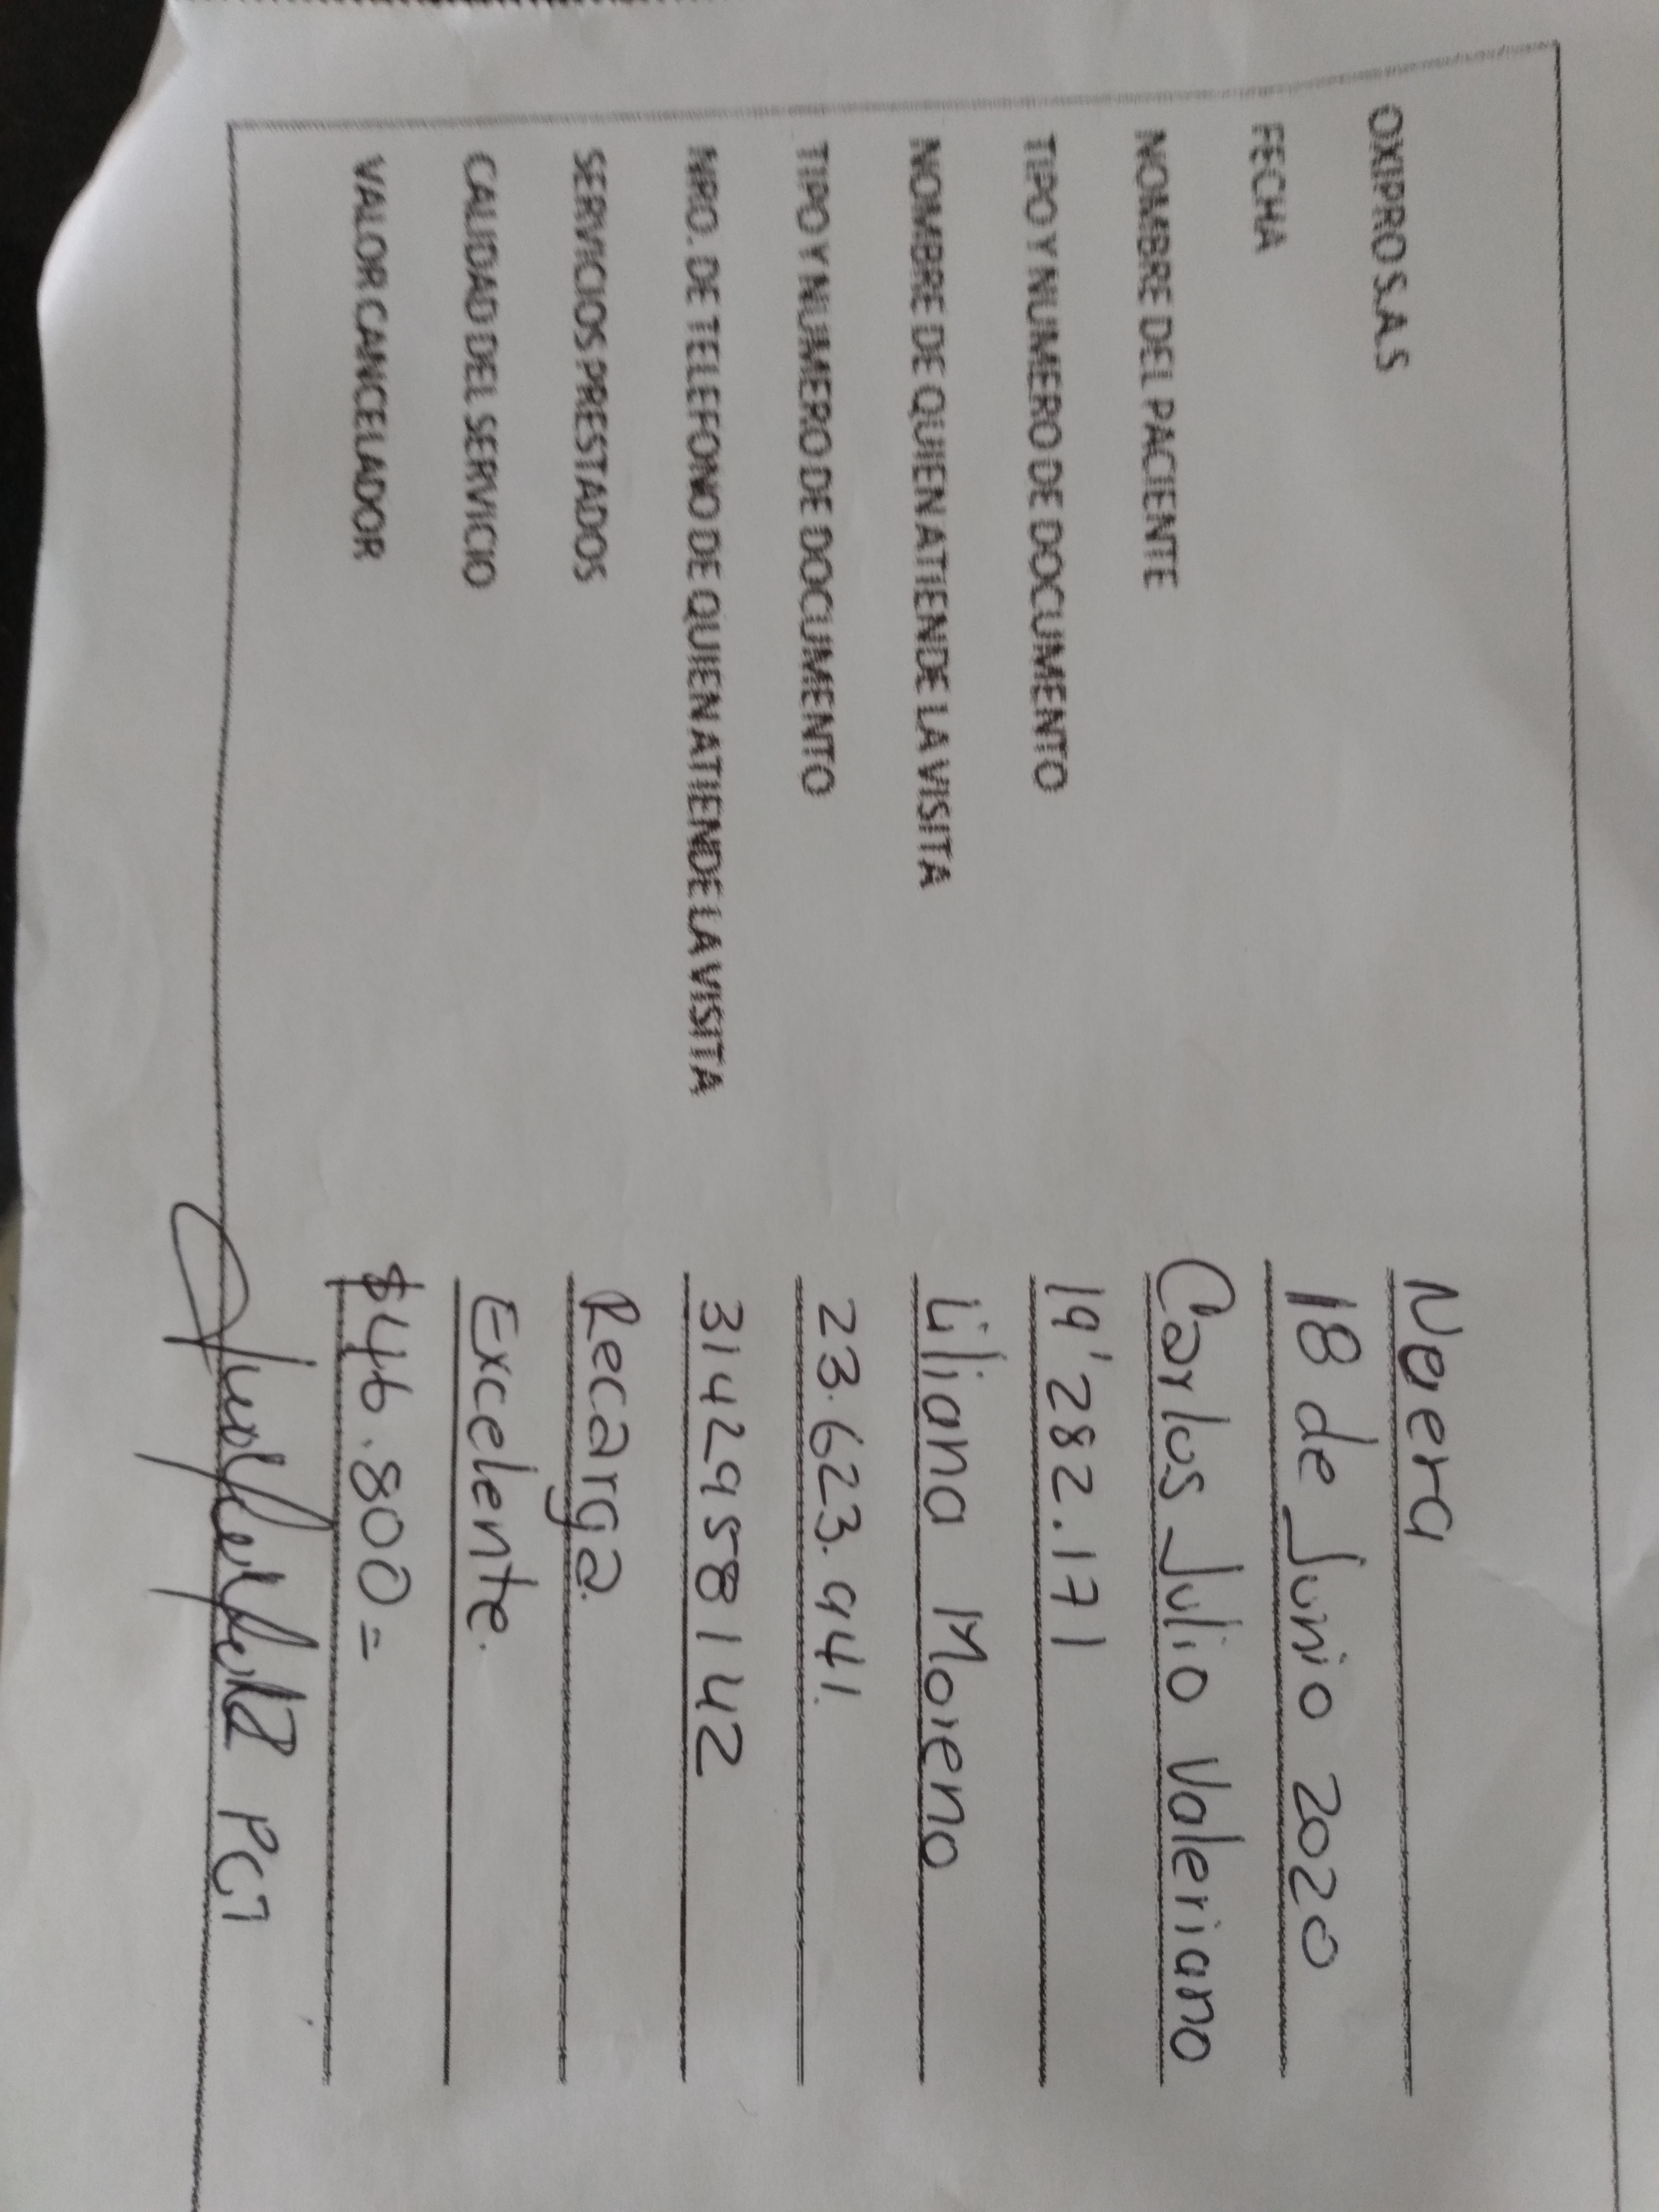 OXIPRO S.A.S Nevera
FECHA 18 de Junio 2020
NOMBRE DEL PACIENTE Carlos Julio Valeriano
TIPO Y NUMERO DE DOCUMENTO 19'282.171
NOMBRE DE QUIEN ATIENDE LA VISITA Liliana Moreno
TIPO Y NUMERO DE DOCUMENTO 23.623.941.
NRO. DE TELEFONO DE QUIEN ATIENDE LA VISITA 3142958142
SERVICIOS PRESTADOS Recarga.
CALIDAD DEL SERVICIO Excelente.
VALOR CANCELADOR $46.800=